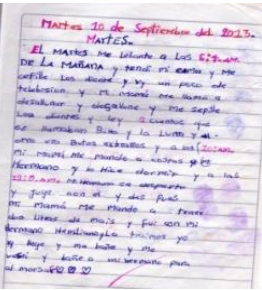 Martes 10 de Septiembre del 2013.
MARTES.
EL MARTES Me levante a Las 6:
DE LA MAÑANA y tendi mi cama y Me
cepille Los diente y vi un poco de
telebision y Mi mamá me llamo a
desallunar y desallune y me sepille
Los dientes y ley 2 cuentos que
se llamaban Bito y La Luna y el
otro son Botas extraños y a las 10:
mi Mamá me mando a
Hermano y lo Hice dormir y a las
se desperto
y juge con el y des pues
mi Mamá Me Mando a traer
dos libras de mais y fui con mi
Hermano trajimos yo
y lleje y me bañe y me
y bañe a mi hermano para
al